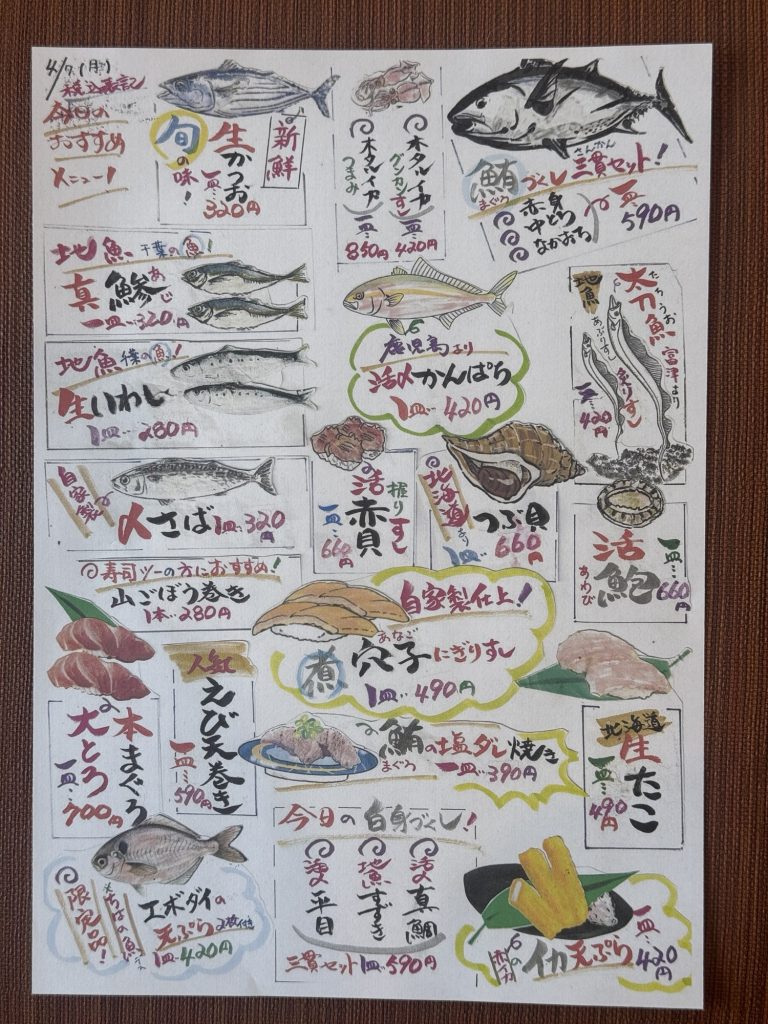 4/7 (月)
税込表記
今日の
おすすめ
メニュー!
新鮮
生かつお
旬の味!
一皿…320円
ホタルイカ
グンカンすし
一皿…420円
ホタルイカ
つまみ
一皿…850円
さんかん
鮪づくし三貫セット!
まぐろ
赤身
中とろ
なかおち
一皿…590円
地魚 千葉の魚!
真鯵
あじ
一皿…320円
地魚 千葉の魚!
生いわし
1皿…280円
鹿児島より
活〆かんぱち
1皿…420円
地魚
たちうお
太刀魚
富津より
炙りすし
あぶりすし
一皿…420円
自家製
〆さば 1皿…320円
握りすし
活赤貝
一皿…660円
北海道より
つぶ貝
1皿…660円
活鮑
あわび
一皿…660円
寿司ツーの方におすすめ!
山ごぼう巻き
1本…280円
自家製仕上!
あなご
煮穴子にぎりすし
1皿…490円
本まぐろ
大とろ
一皿…700円
人気
えび天巻き
一皿…590円
鮪の塩ダレ焼き
まぐろ
一皿…390円
北海道
生たこ
一皿…490円
限定品!
※ちばの魚
エボダイの
天ぷら 2枚付き
1皿…420円
今日の白身づくし!
活〆真鯛
地魚すずき
活〆平目
三貫セット1皿…590円
イカ天ぷら
一皿…420円